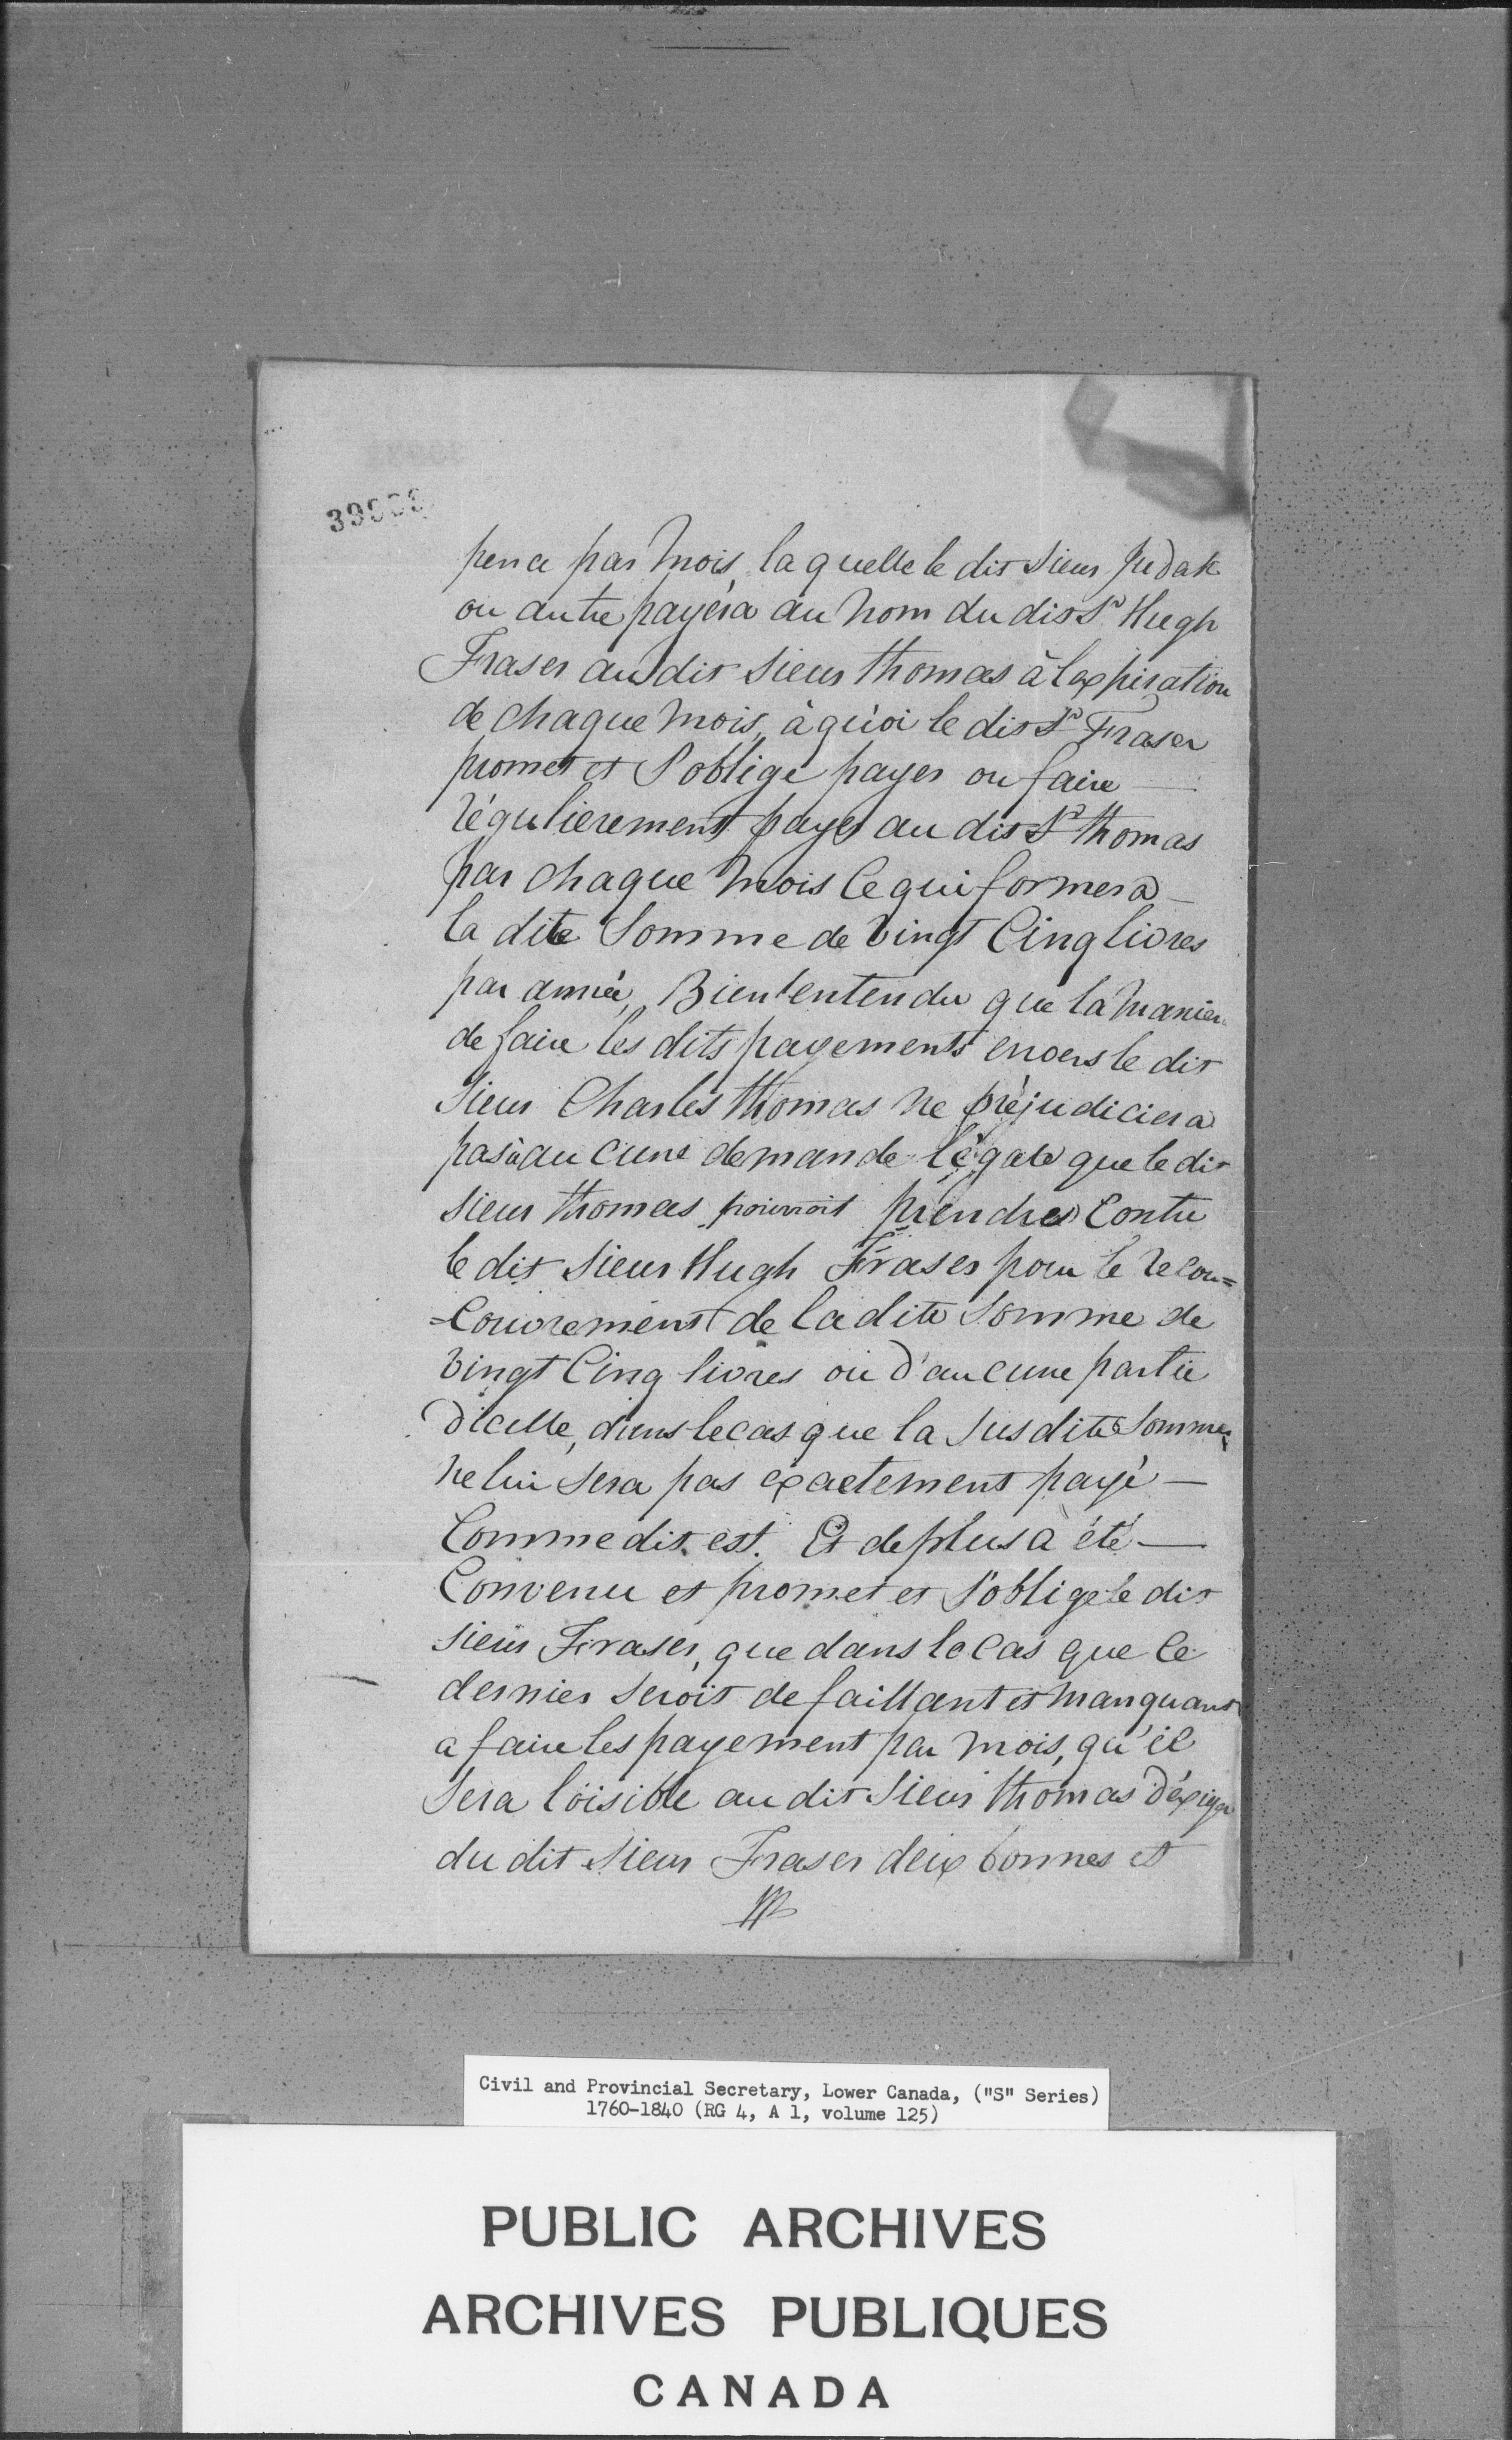 pence par mois, laquelle le dit Sieur Judah
ou autre payéra au nom du dit Sr. Hugh
Fraser au dit Sieur Thomas à lexpiration
de chaque mois, à quoi le dit Sr Fraser
promet et S'oblige payer ou faire —
régulierement payer au dit Sr Thomas
par chaque mois Ce qui formera —
la dite Somme de Vingt Cinq livres
par année, Bien entendu que la manier
de faire les dits payements envers le dit
Sieur Charles Thomas ne préjudiciera
pas à aucune demande légale que le dit
Sieur Thomas pourroit prendre Contre
le dit Sieur Hugh Fraser pour le recou=
=Couvrement de la dite Somme de
Vingt Cinq livres ou d'aucune partie
d'icelle, dans le cas que la Susdite Somme
ne lui Sera pas exactement payé —
Comme dit est. Et de plus a été —
Convenu et promet et S'oblige le dit
Sieur Fraser, que dans le Cas que Ce
dernier Seroit defaillant et manquant
a faire les payement par mois, qu'il
Sera loisible au dit Sieur Thomas d'éxiger
du dit Sieur Fraser deux bonnes et
Civil and Provincial Secretary, Lower Canada, ("S" Series)
1760-1840 (RG 4, A 1, volume 125)
PUBLIC ARCHIVES
ARCHIVES PUBLIQUES
CANADA